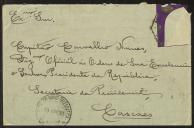 Exmo
Sr.
Capitão Carvalho Nunes,
Digmo Oficial às Ordens de Sua Excelencia
o Senhor Presidente da Republica,
Secretaria da Presidencia
Cascaes